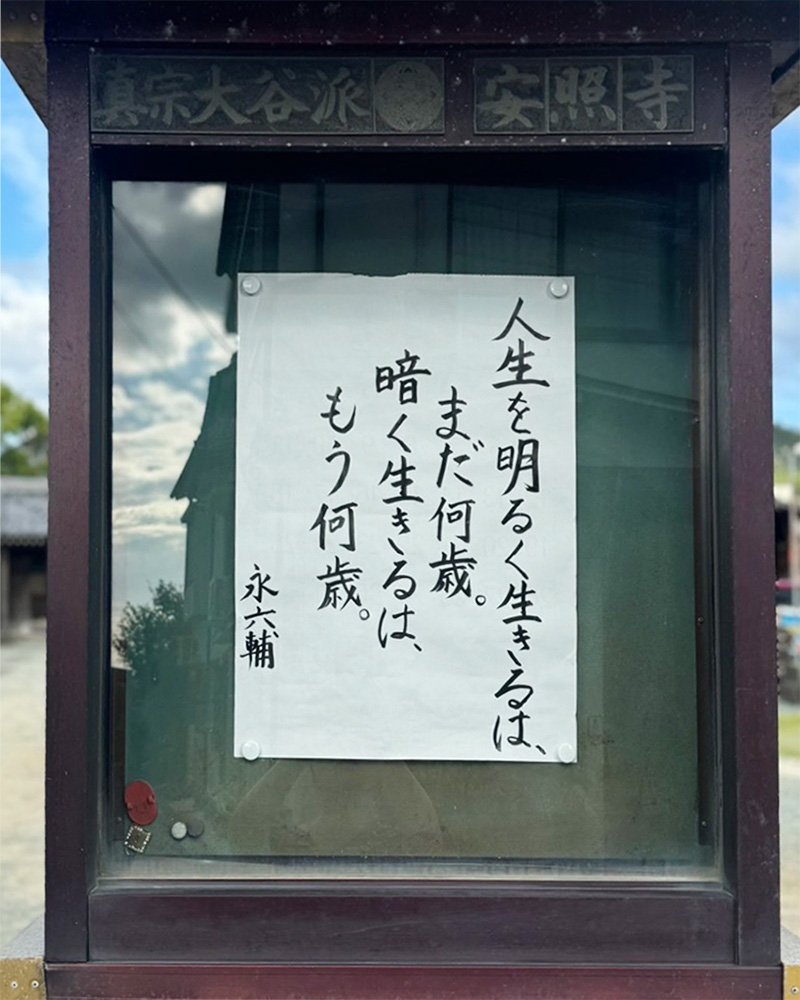 真宗大谷派
安照寺
人生を明るく生きるは、
まだ何歳。
暗く生きるは、
もう何歳。
永六輔